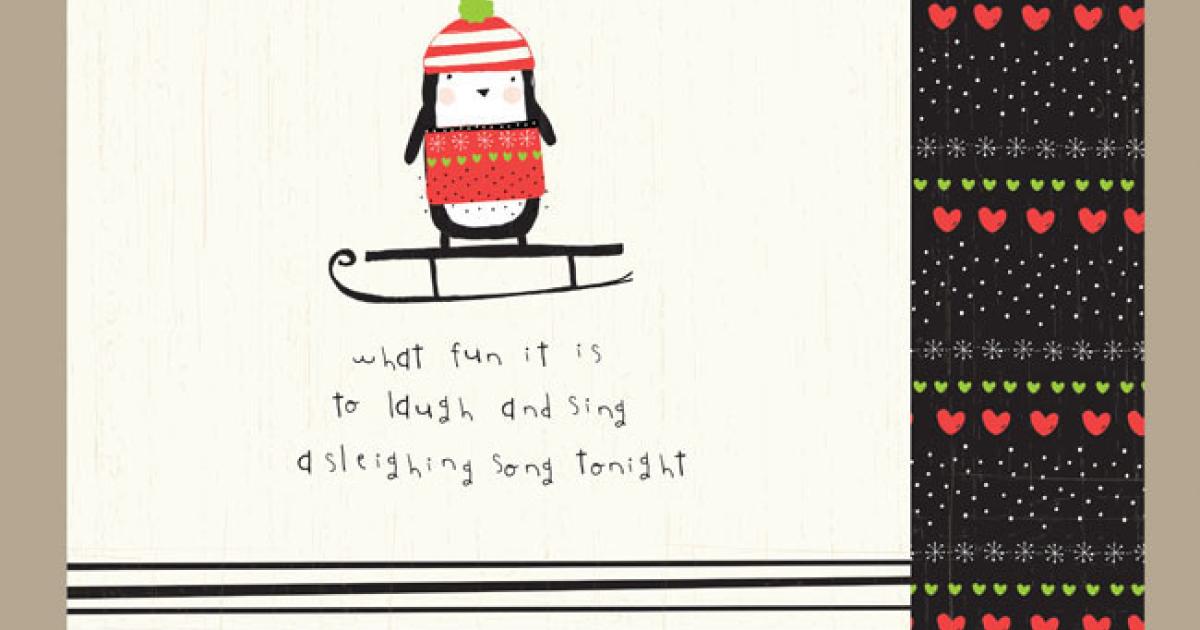 what fun it is
to laugh and sing
a sleighing song tonight